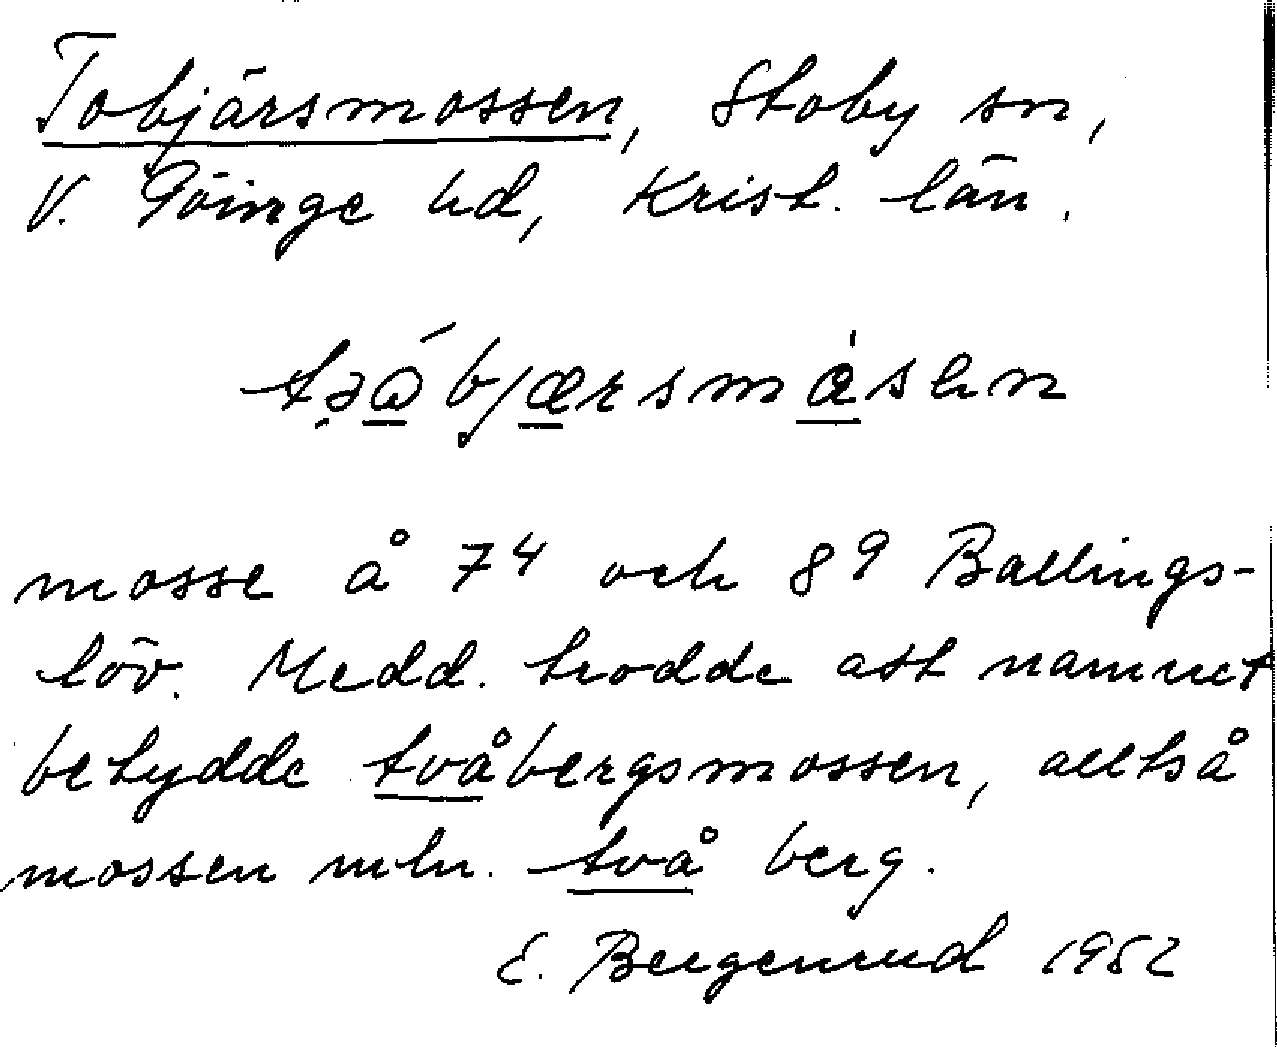 Tobjärsmossen, Stoby sn,
V. Göinge hd, Krist. län.
mosse å 74 och 89 Ballings-
löv. Medd. trodde att namnet
betydde tvåbergsmossen, alltså
mossen mln. två berg.
E. Bergenrud 1952